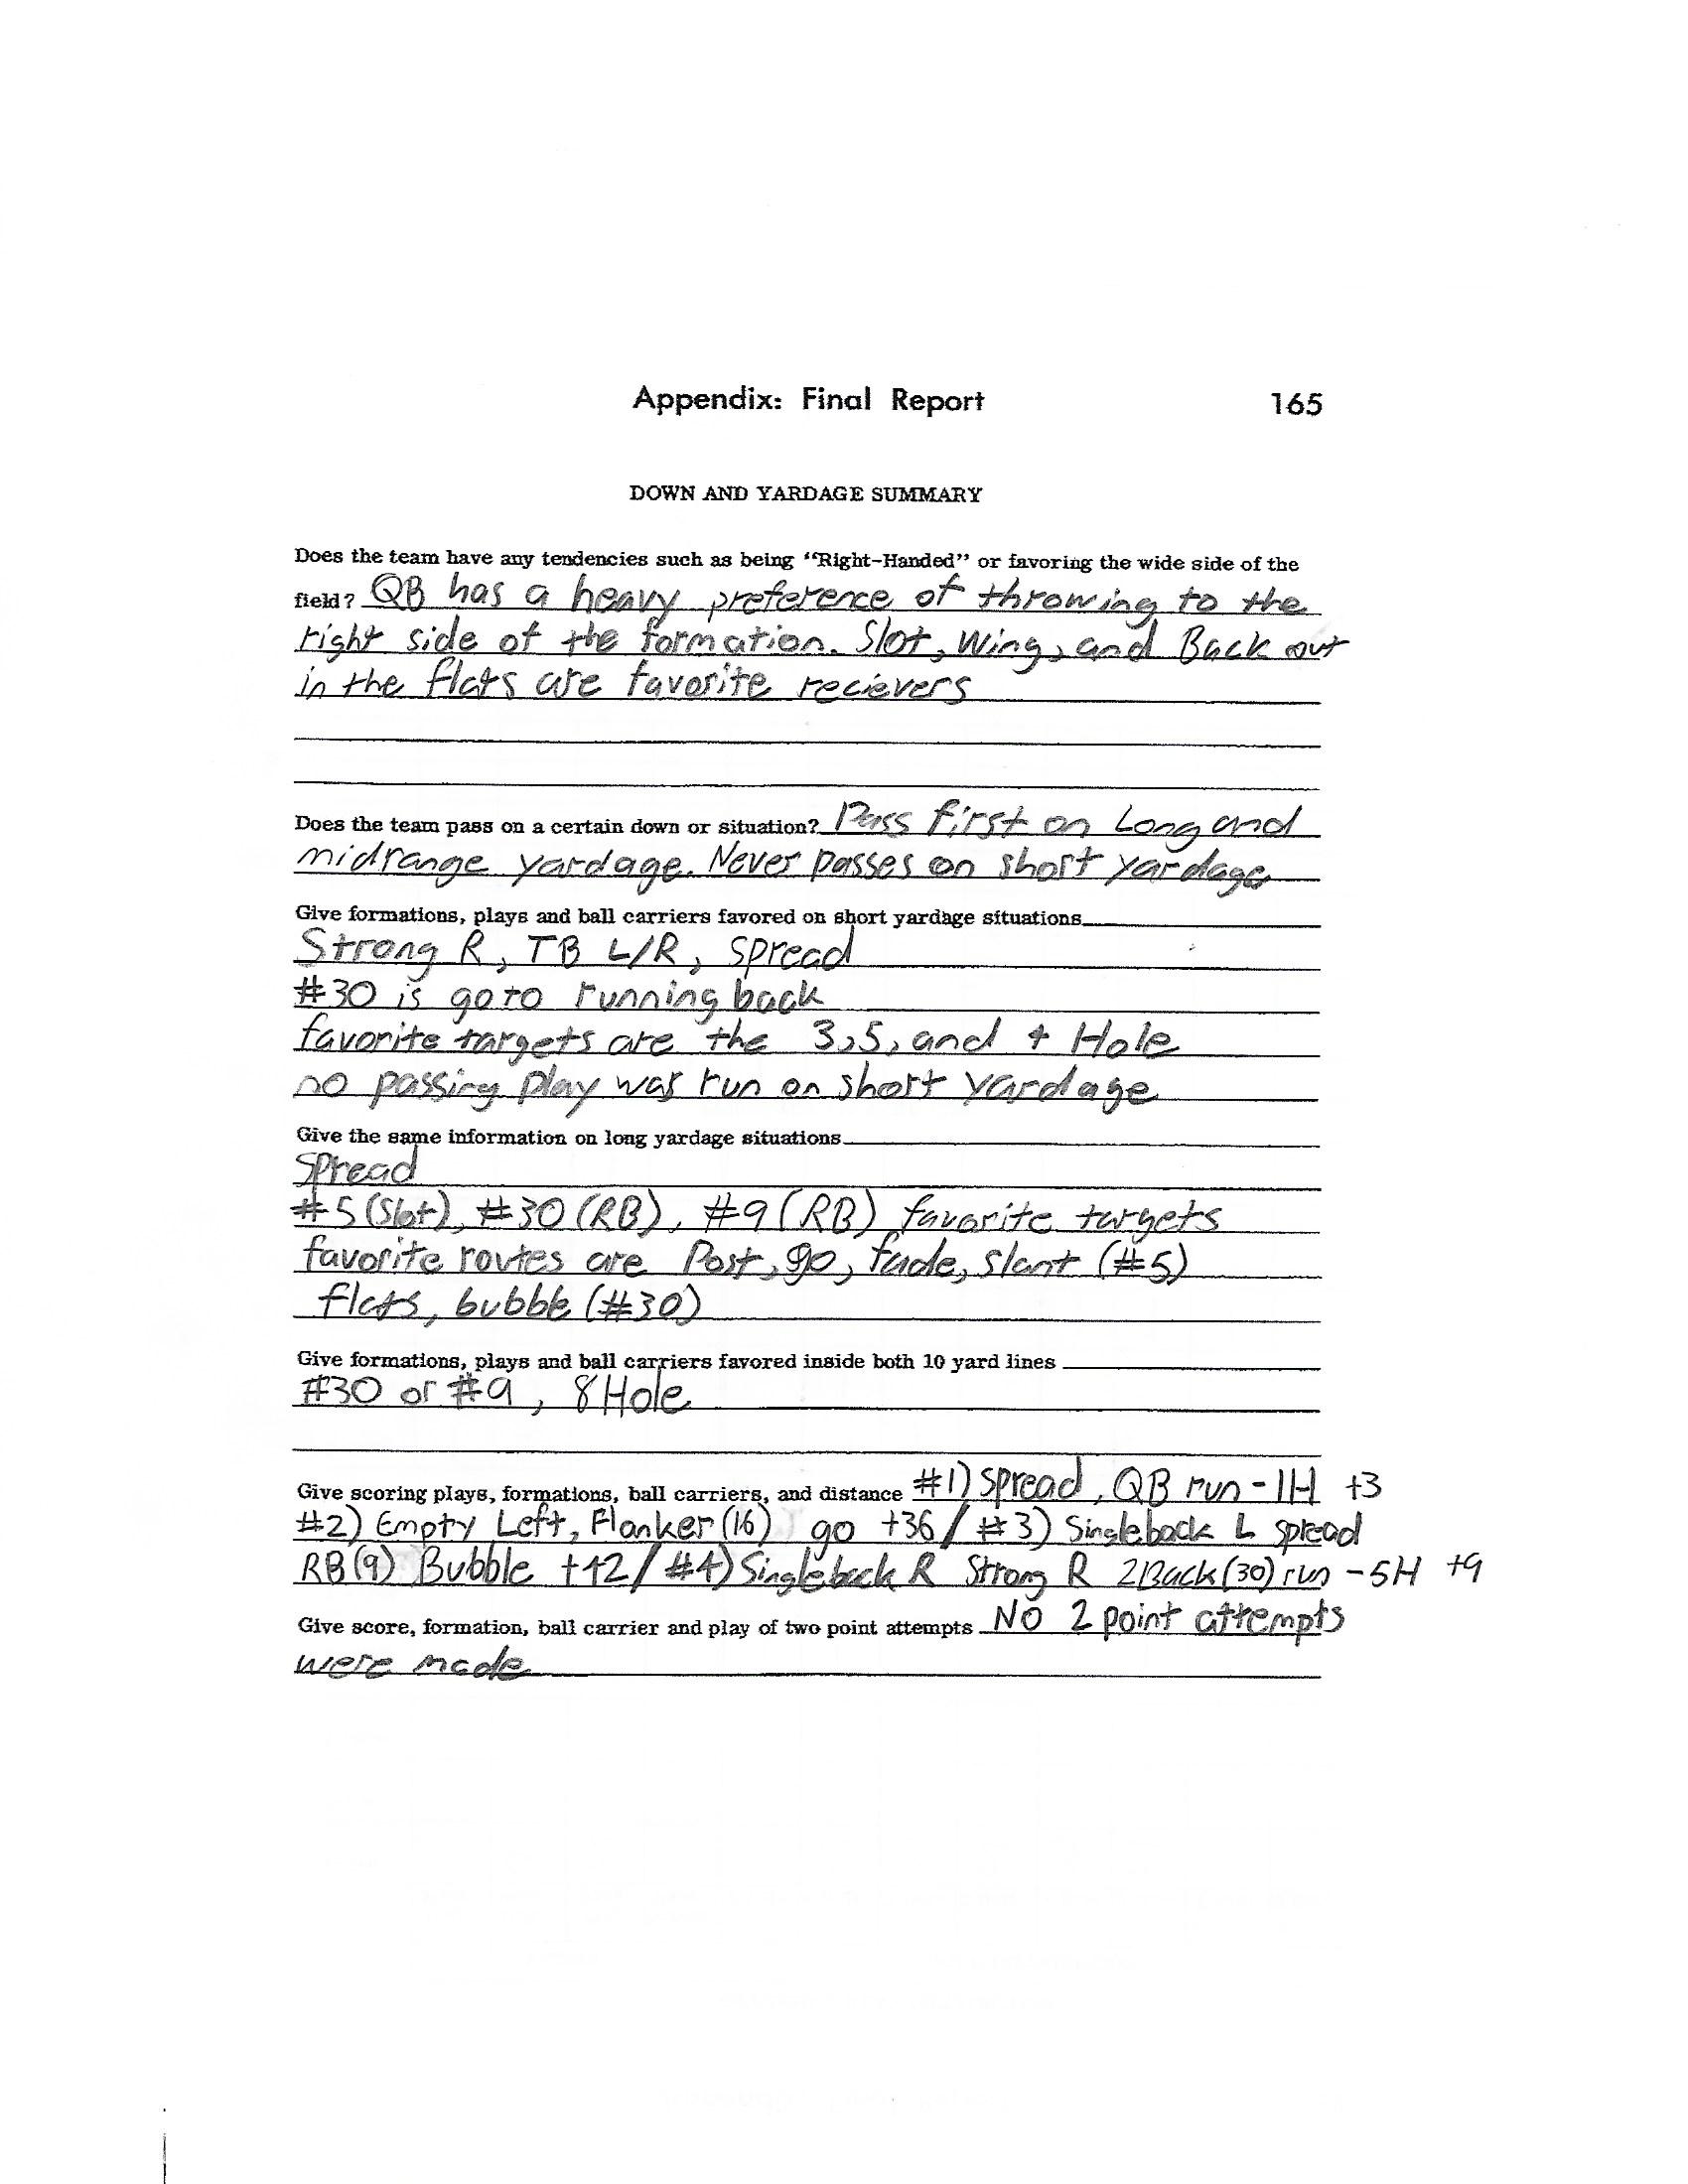 Appendix: Final Report 165
DOWN AND YARDAGE SUMMARY
Does the team have any tendencies such as being "Right-Handed" or favoring the wide side of the
field? QB has a heavy preference of throwing to the
right side of the formation. Slot, Wing, and Back out
in the flats are favorite recievers
Does the team pass on a certain down or situation? Pass first on Long and
midrange yardage. Never passes on short yardage
Give formations, plays and ball carriers favored on short yardage situations
Strong R, TB L/R, spread
#30 is goto running back
favorite targets are the 3,5, and 4 Hole
no passing play was run on short yardage
Give the same information on long yardage situations
Spread
#5 (Slot), #30 (RB), #9 (RB) favorite targets
favorite routes are Post, go, fade, slant (#5)
flats, bubble (#30)
Give formations, plays and ball carriers favored inside both 10 yard lines
#30 or #9, 8 Hole
Give scoring plays, formations, ball carriers, and distance #1) Spread, QB run - 1H +3
#2) Empty Left, Flanker (16) go +36 / #3) Singleback L spread
RB (9) Bubble +42 / #4) Singleback R Strong R 2Back (30) run - 5H +9
Give score, formation, ball carrier and play of two point attempts NO 2 point attempts
were made